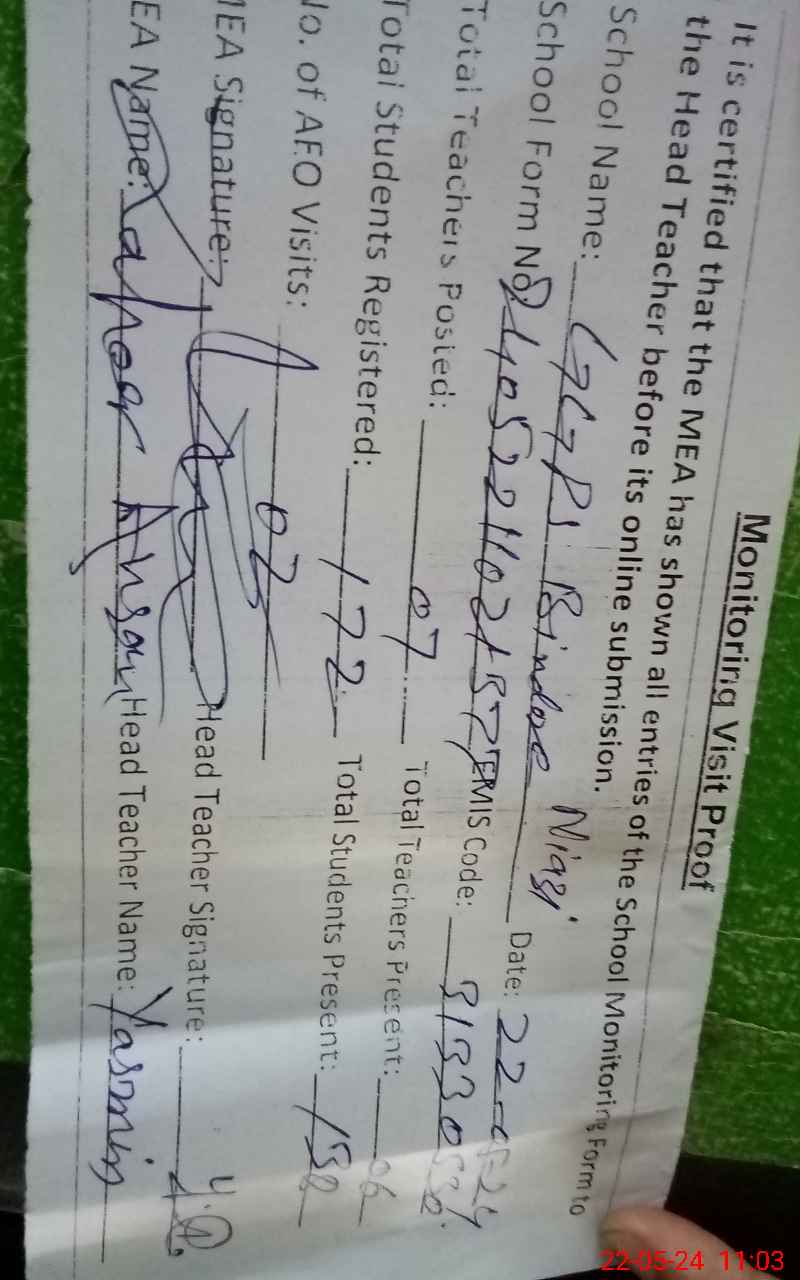 Monitoring Visit Proof
It is certified that the MEA has shown all entries of the School Monitoring Form to
the Head Teacher before its online submission.
School Name: GGPS Bindore Niazi Date: 22-05-24
School Form No. EMIS Code:
Total Teachers Posted: 07 Total Teachers Present: 06
Total Students Registered: 172 Total Students Present: 132
No. of AEO Visits: 02
MEA Signature: Head Teacher Signature: Y.Q.
EA Name: Ahsan Head Teacher Name: Yasmin
22-05-24 11:03